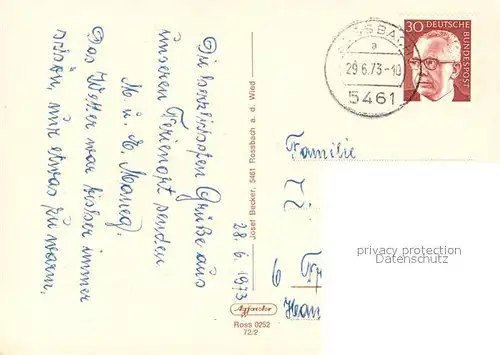 Die herzlichsten Grüße aus
unserem Ferienort senden
M. u. K.
Das Wetter war bisher immer
schön, nur etwas zu warm.
28. 6 1973
Josef Becker, 5461 Rossbach a. d. Wied
Agfacolor
Ross 0252
72/2
ROSSBACH
a
29.6.73-10
5461
30 DEUTSCHE
BUNDESPOST
Familie
6
privacy protection
Datenschutz